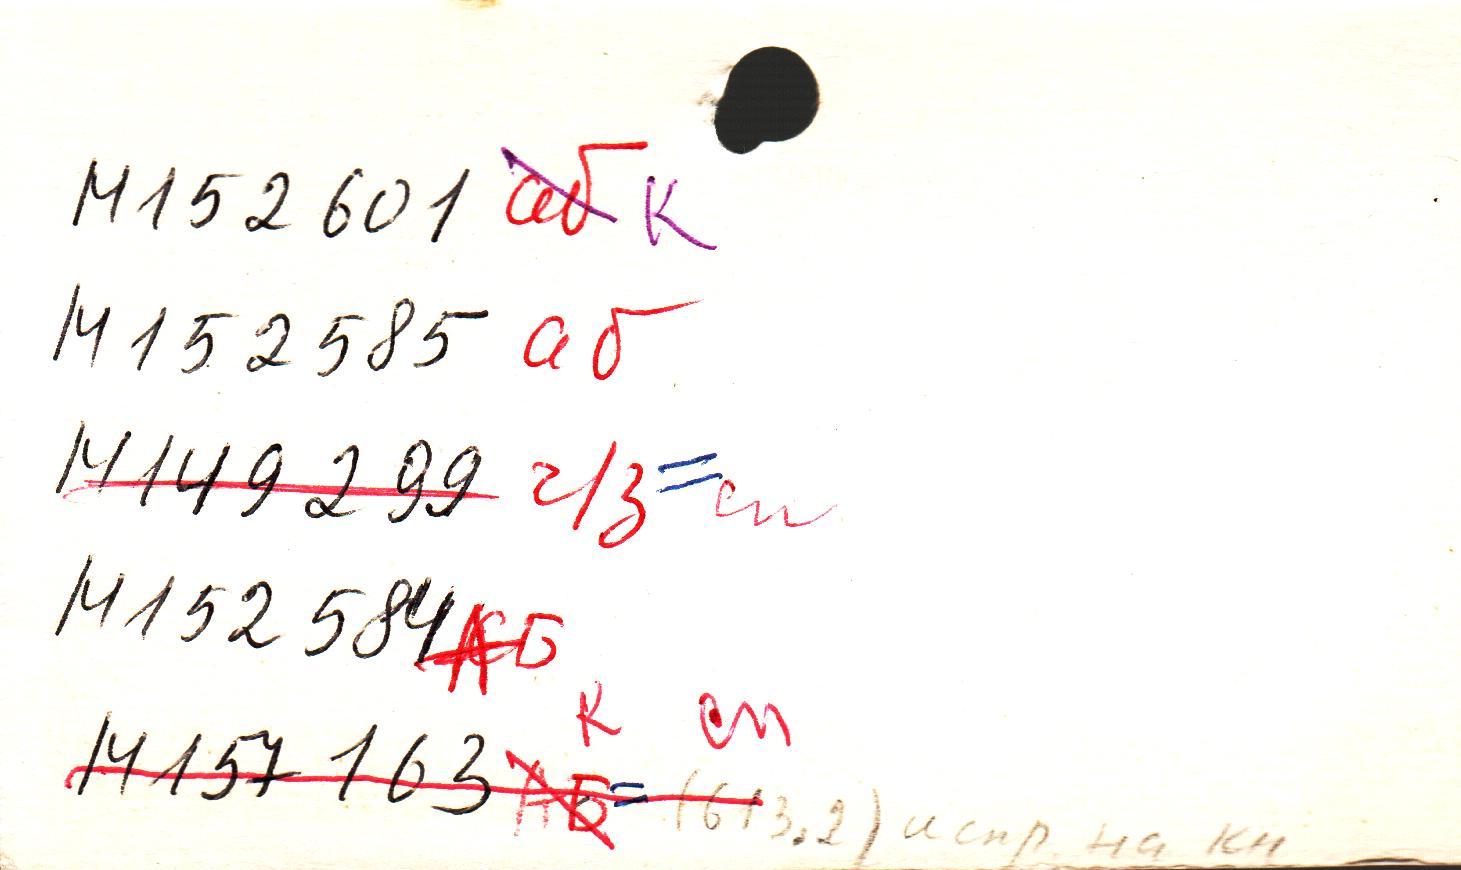 М152601 аб К
М152585 аб
М149299 ч/з = сп
М152584 АБ
к сп
М157163 АБ = (613.2) испр. на кн